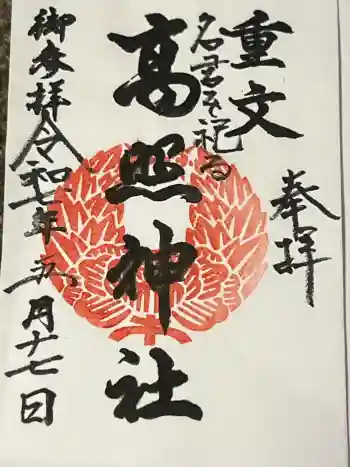 奉拝
重文
名君を祀る
高照神社
御参拝
令和七年五月十七日